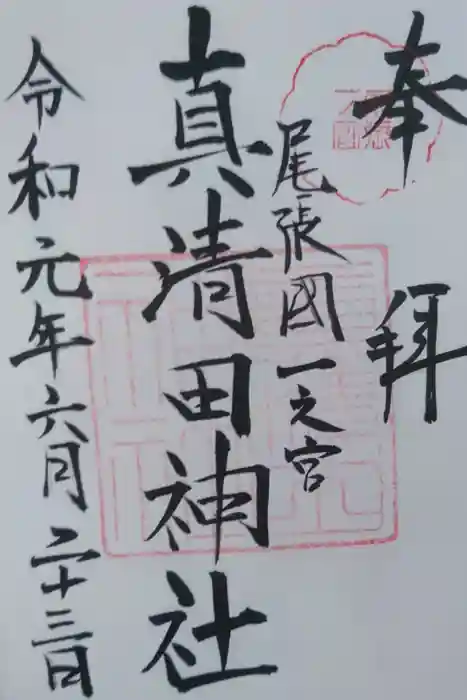 奉拜
尾張國一之宮
真清田神社
令和元年六月二十三日